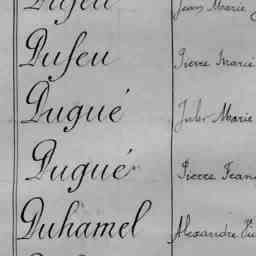 Dufeu Jean Marie
Dufeu Pierre Marie
Dugué Jules Marie
Dugué Pierre
Duhamel Alexandre